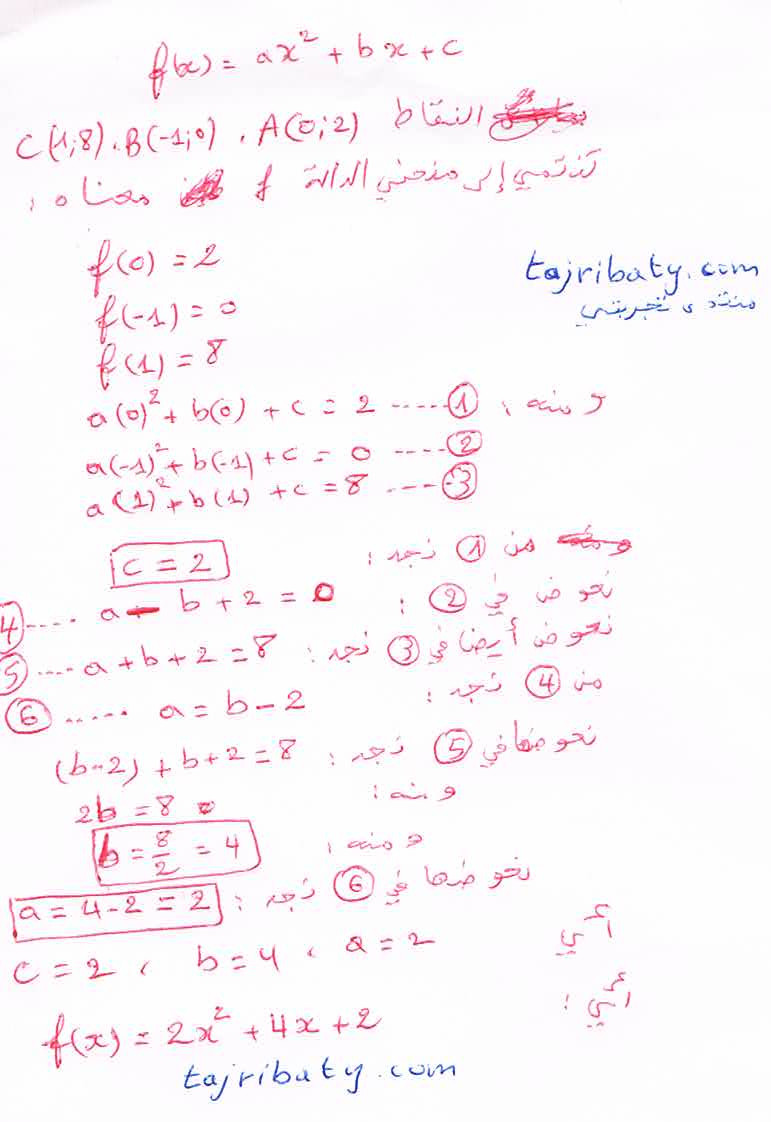 f(x) = ax² + bx + c
النقاط A(0;2) ، B(-1;0) ، C(1;8)
تنتمي إلى منحني الدالة f معناه :
f(0) = 2
tajribaty.com
f(-1) = 0
منتدى تجربتي
f(1) = 8
ومنه : a(0)² + b(0) + c = 2 ..... ①
a(-1)² + b(-1) + c = 0 .... ②
a(1)² + b(1) + c = 8 .... ③
من ① نجد : c = 2
نعوض في ② : a - b + 2 = 0 .... ④
نعوض أيضا في ③ نجد : a + b + 2 = 8 .... ⑤
من ④ نجد : a = b - 2 ..... ⑥
نعوضها في ⑤ نجد : (b-2) + b + 2 = 8
ومنه : 2b = 8
ومنه : b = 8/2 = 4
نعوضها في ⑥ نجد : a = 4 - 2 = 2
أي a = 2 ، b = 4 ، c = 2
أي : f(x) = 2x² + 4x + 2
tajribaty.com